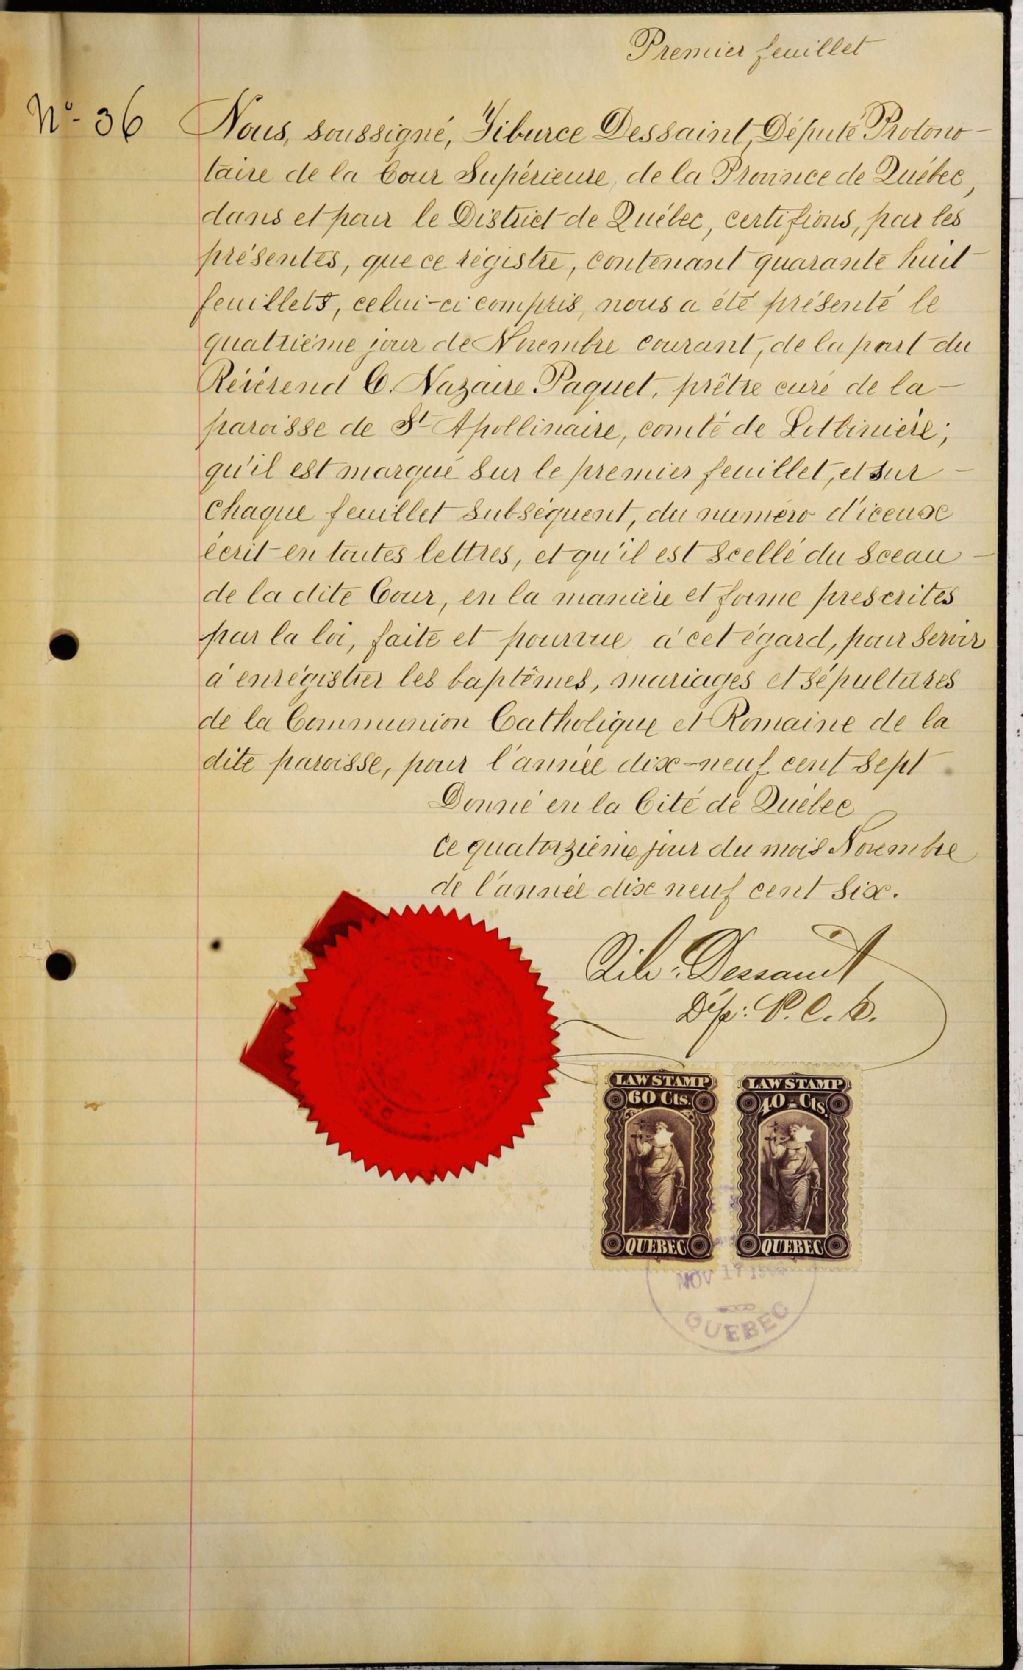 Premier feuillet
No- 36
Nous, soussigné, Tiburce Dessaint, Député Protono-
taire de la Cour Supérieure, de la Province de Québec,
dans et pour le District de Québec, certifions, par les
présentes, que ce régistre, contenant quarante huit
feuillets, celui-ci compris, nous a été présenté le
quatrième jour de Novembre courant, de la part du
Révérend C. Nazaire Paquet, prêtre curé de la-
paroisse de St Apollinaire, comté de Lotbinière;
qu'il est marqué sur le premier feuillet, et sur-
chaque feuillet subséquent, du numéro d'iceux
écrit en toutes lettres, et qu'il est scellé du sceau-
de la dite Cour, en la manière et forme prescrites
par la loi, faite et pourvue à cet égard, pour servir
à enrégistrer les baptêmes, mariages et sépultures
de la Communion Catholique et Romaine de la
dite paroisse, pour l'année dix-neuf cent sept
Donné en la Cité de Québec
ce quatorzième jour du mois Novembre
de l'année dix neuf cent six.
Tib: Dessaint
Dép: P.C.S.
LAW STAMP LAW STAMP
60 Cts. 40 Cts.
QUEBEC QUEBEC
NOV 17
QUEBEC